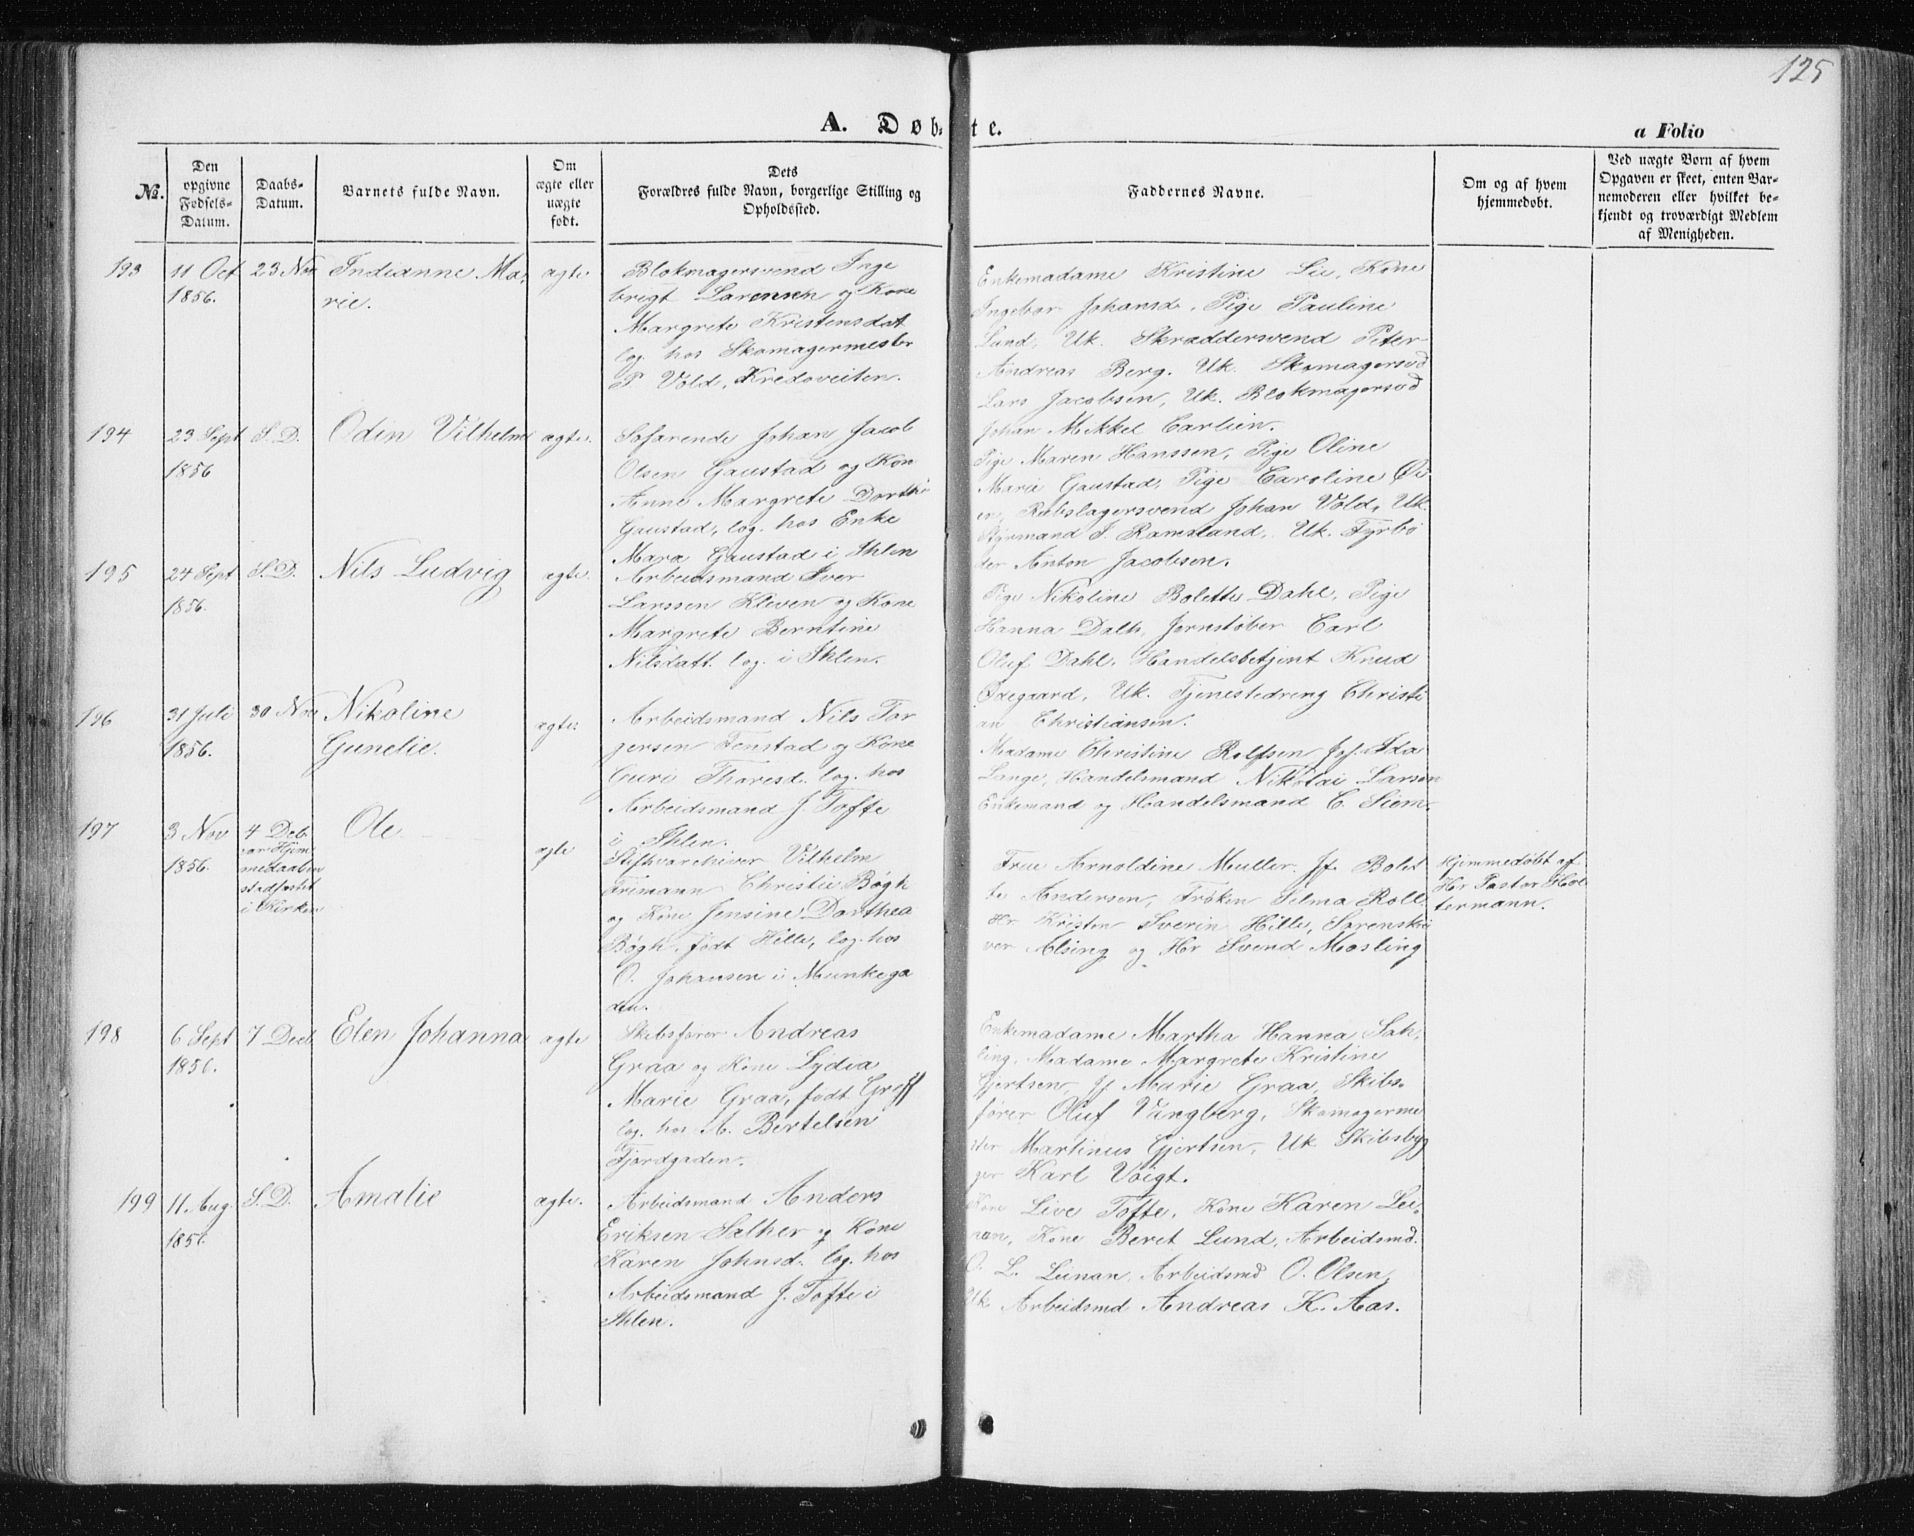 125
A. Døbte.
a Folio
No.
Den opgivne Fødsels-Datum.
Daabs-Datum.
Barnets fulde Navn.
Om ægte eller uægte født.
Dets Forældres fulde Navn, borgerlige Stilling og Opholdssted.
Faddernes Navne.
Om og af hvem hjemmedøbt.
Ved uægte Børn af hvem Opgaven er skeet, enten Barnemoderen eller hvilket bekjendt og troværdigt Medlem af Menigheden.
193
11 Oct
1856.
23 Nov
Indianne Ma-
rie.
ægte
Blokmagersvend Inge
brigt Larensen og Kone
Margrete Kristensdat
log. hos Skomagermester
P Vold, Kredoveiten.
Enkemadame Kristine Lie, Kone
Ingebor Johansd. Pige Pauline
Lund, Uk. Skræddersvend Peter
Andreas Berg. Uk. Skomagersvd
Lars Jacobsen, Uk. Blokmagersvd
Johan Mikkel Carlien.
194
23 Sept
1856
S.D.
Odin Vilhelm
ægte.
Søfarende Johan Jacob
Olsen Gaustad og Kon
Anne Margrete Dorthe
Gaustad, log. hos Enke
Mara Gaustad i Ihlen
Pige Maren Hanssen, Pige Oline
Marie Gaustad, Pige Caroline Øi
en, Rebslagersvend Johan Vold, Uk.
Styrmand J. Ramsland, Uk. Fyrbø
der Anton Jacobsen.
195
24 Sept
1856.
S.D.
Nils Ludvig
ægte.
Arbeidsmand Iver
Larssen Kleven og Kone
Margrete Berntine
Nilsdatt. log. i Ihlen.
Pige Nikoline Bolette Dahl, Pige
Hanna Dalh, Jernstøber Carl
Oluf Dahl. Handelsbetjent Knud
Øxegaard, Uk. Tjenestedreng Christi
an Christiansen.
196
31 Juli
1856.
30 Nov
Nikoline
Gunelie.
ægte.
Arbeidsmand Nils Tor
gersen Fenstad og Kone
Guri Thoresd. log. hos
Arbeidsmand J. Tofte
i Ihlen.
Madame Christine Rolfsen Jf. Ida
Lange, Handelsmand Nikolai Larsen
Enkemand og Handelsmand C. Siem.
197
3 Nov
1856.
4 Deb.
var Hjem
medaaben
stadfæstet
i Kirken
Ole
ægte
Stiftsarchiver Vilhelm
Frimann Christie Bøgh
og Kone Jensine Dorthea
Bøgh, født Hille, log. hos
O. Johansen i Munkega
den.
Frue Arnoldine Muller. Jf. Bolet
te Andersen, Frøken Selma Roll
Hr. Kristen Sverin Hille, Sorenskri
ver Alsing og Hr Svend Mosling
Hjemmedøbt af
Hr Pastor Hol
termann.
198
6 Sept
1856.
7 Deeb
Elen Johanna
ægte
Skibsfører Andreas
Graa og Kone Lydia
Marie Graa, født Graff
log. hos A. Bertelsen
Fjordgaden.
Enkemadame Martha Hanna Sah-
ling, Madame Margrete Kristine
Gjertsen Jf Marie Graa, Skibs-
fører Oluf Vingberg, Skomagerme
ster Martinus Gjertsen, Uk Skibsbyg
ger Karl Voigt.
199
11 Aug
1856.
S.D.
Amalie
ægte.
Arbeidsmand Anders
Eriksen Sather og Kone
Karen Johnsd. log. hos
Arbeidsmand J. Tofte i
Ihlen.
Kone Live Tofte, Kone Karen Lei-
nan, Kone Beret Lund, Arbeidsmd.
O. L. Leinan, Arbeidsmd O. Olsen,
Uk Arbeidsmd Andreas K. Aas.